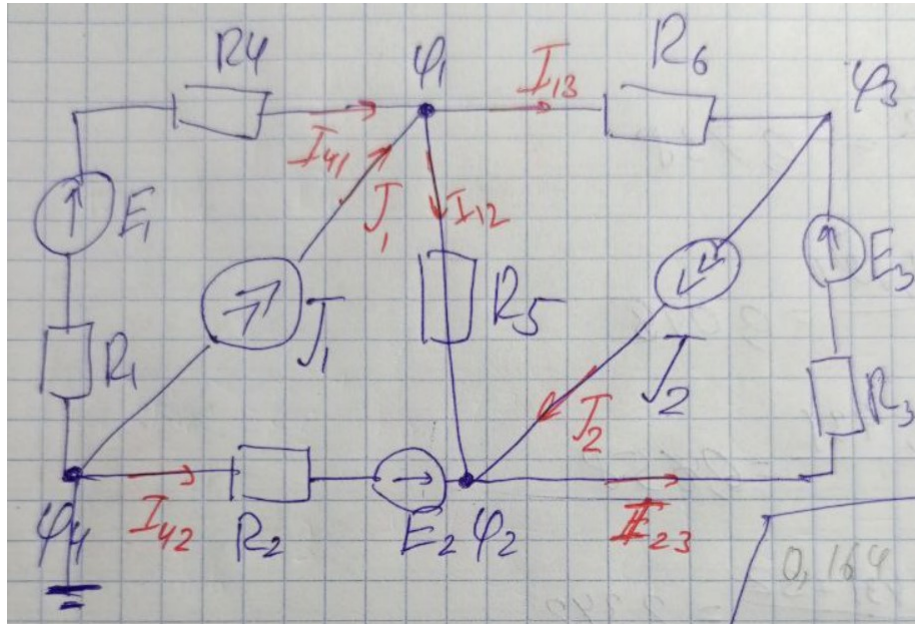 R4
φ1
I13
R6
φ3
I41
J1
I12
E1
J1
R5
E3
R1
J2
J2
R3
φ4
I42
R2
E2
φ2
I23
0,164